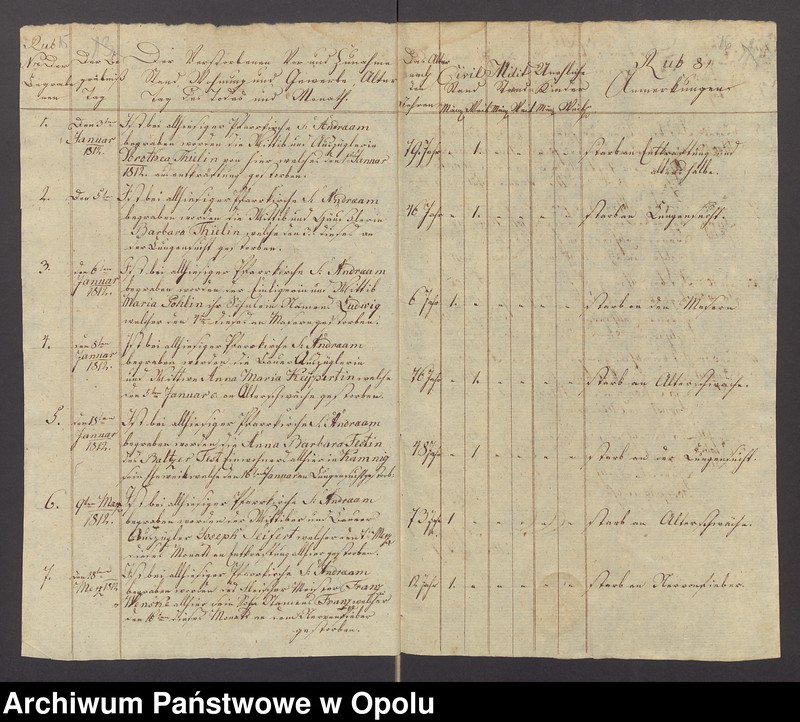 Rub
Nro Der
Begrabe
nen
Der Be
gräbniß
Tag
Der Verstorbenen Vor und Zuname
Stand Wohnung und Gewerbe, Alter
Tag des Todes und Monath.
Das Alter
nach
den
Jahren
Civil
Stand
Milit
Stand
Uneheliche
Kinder
Männ Weib Männ Weib Männ Weib
Rub 8
Anmerkungen
1. Den 3ten
Januar
1812.
Ist bei allhiesiger Pfarrkirche S. Andraam
begraben worden die Wittib und Auszüglerin
Dorothea Thielin von hier welche den Januar
1812. an entkräftung gestorben.
79 Jahr - 1. - - - -
starb an Entkräftung und
alters halbe.
2. Den 5ten
Ist bei allhiesiger Pfarrkirche S. Andraam
begraben worden die Wittib und Häuslerin
Barbara Thielin welche den dieses an
der Lungensucht gestorben.
46 Jahr - 1. - - - -
starb an Lungensucht.
3. den 6ten
Januar
1812.
Ist bei allhiesiger Pfarrkirche S. Andraam
begraben worden der Einligerin und Wittib
Maria ihr Söhnlein Namens Ludwig
welcher den 4ten dieses an Masern gestorben.
6 Jahr 1. - - - - -
starb an den Masern
4. den 8ten
Januar
1812.
Ist bei allhiesiger Pfarrkirche S. Andraam
begraben worden die Bauer Auszüglerin
und Wittwe Anna Maria welche
den Januar c. an Altersschwäche gestorben.
76 Jahr - 1. - - - -
starb an Altersschwäche.
5. den 18ten
Januar
1812.
Ist bei allhiesiger Pfarrkirche S. Andraam
begraben worden die Anna Barbara Festin
des Baltzer Fest Einwohners allhier in Kamnig
sein Eheweib welche den 16ten Januar an Lungensucht gestorb.
48 Jahr - 1 - - - -
starb an der Lungensucht.
6. 9ten Merz
1812.
Ist bei allhiesiger Pfarrkirche S. Andraam
begraben worden der Wittiber und Bauer
Auszügler Joseph Seifert welcher den 7ten Merz
dieses Monats an entkräftung allhier gestorben.
73 Jahr 1 - - - - -
starb an Altersschwäche.
7. den 18ten
Merz 1812
Ist bei allhiesiger Pfarrkirche S. Andraam
begraben worden des Meister Franz
allhier sein Sohn Namens Franz welcher
den 16ten dieses Monats an dem Nervenfieber
gestorben.
12 Jahr 1. - - - - -
starb an Nervenfieber.
Archiwum Państwowe w Opolu